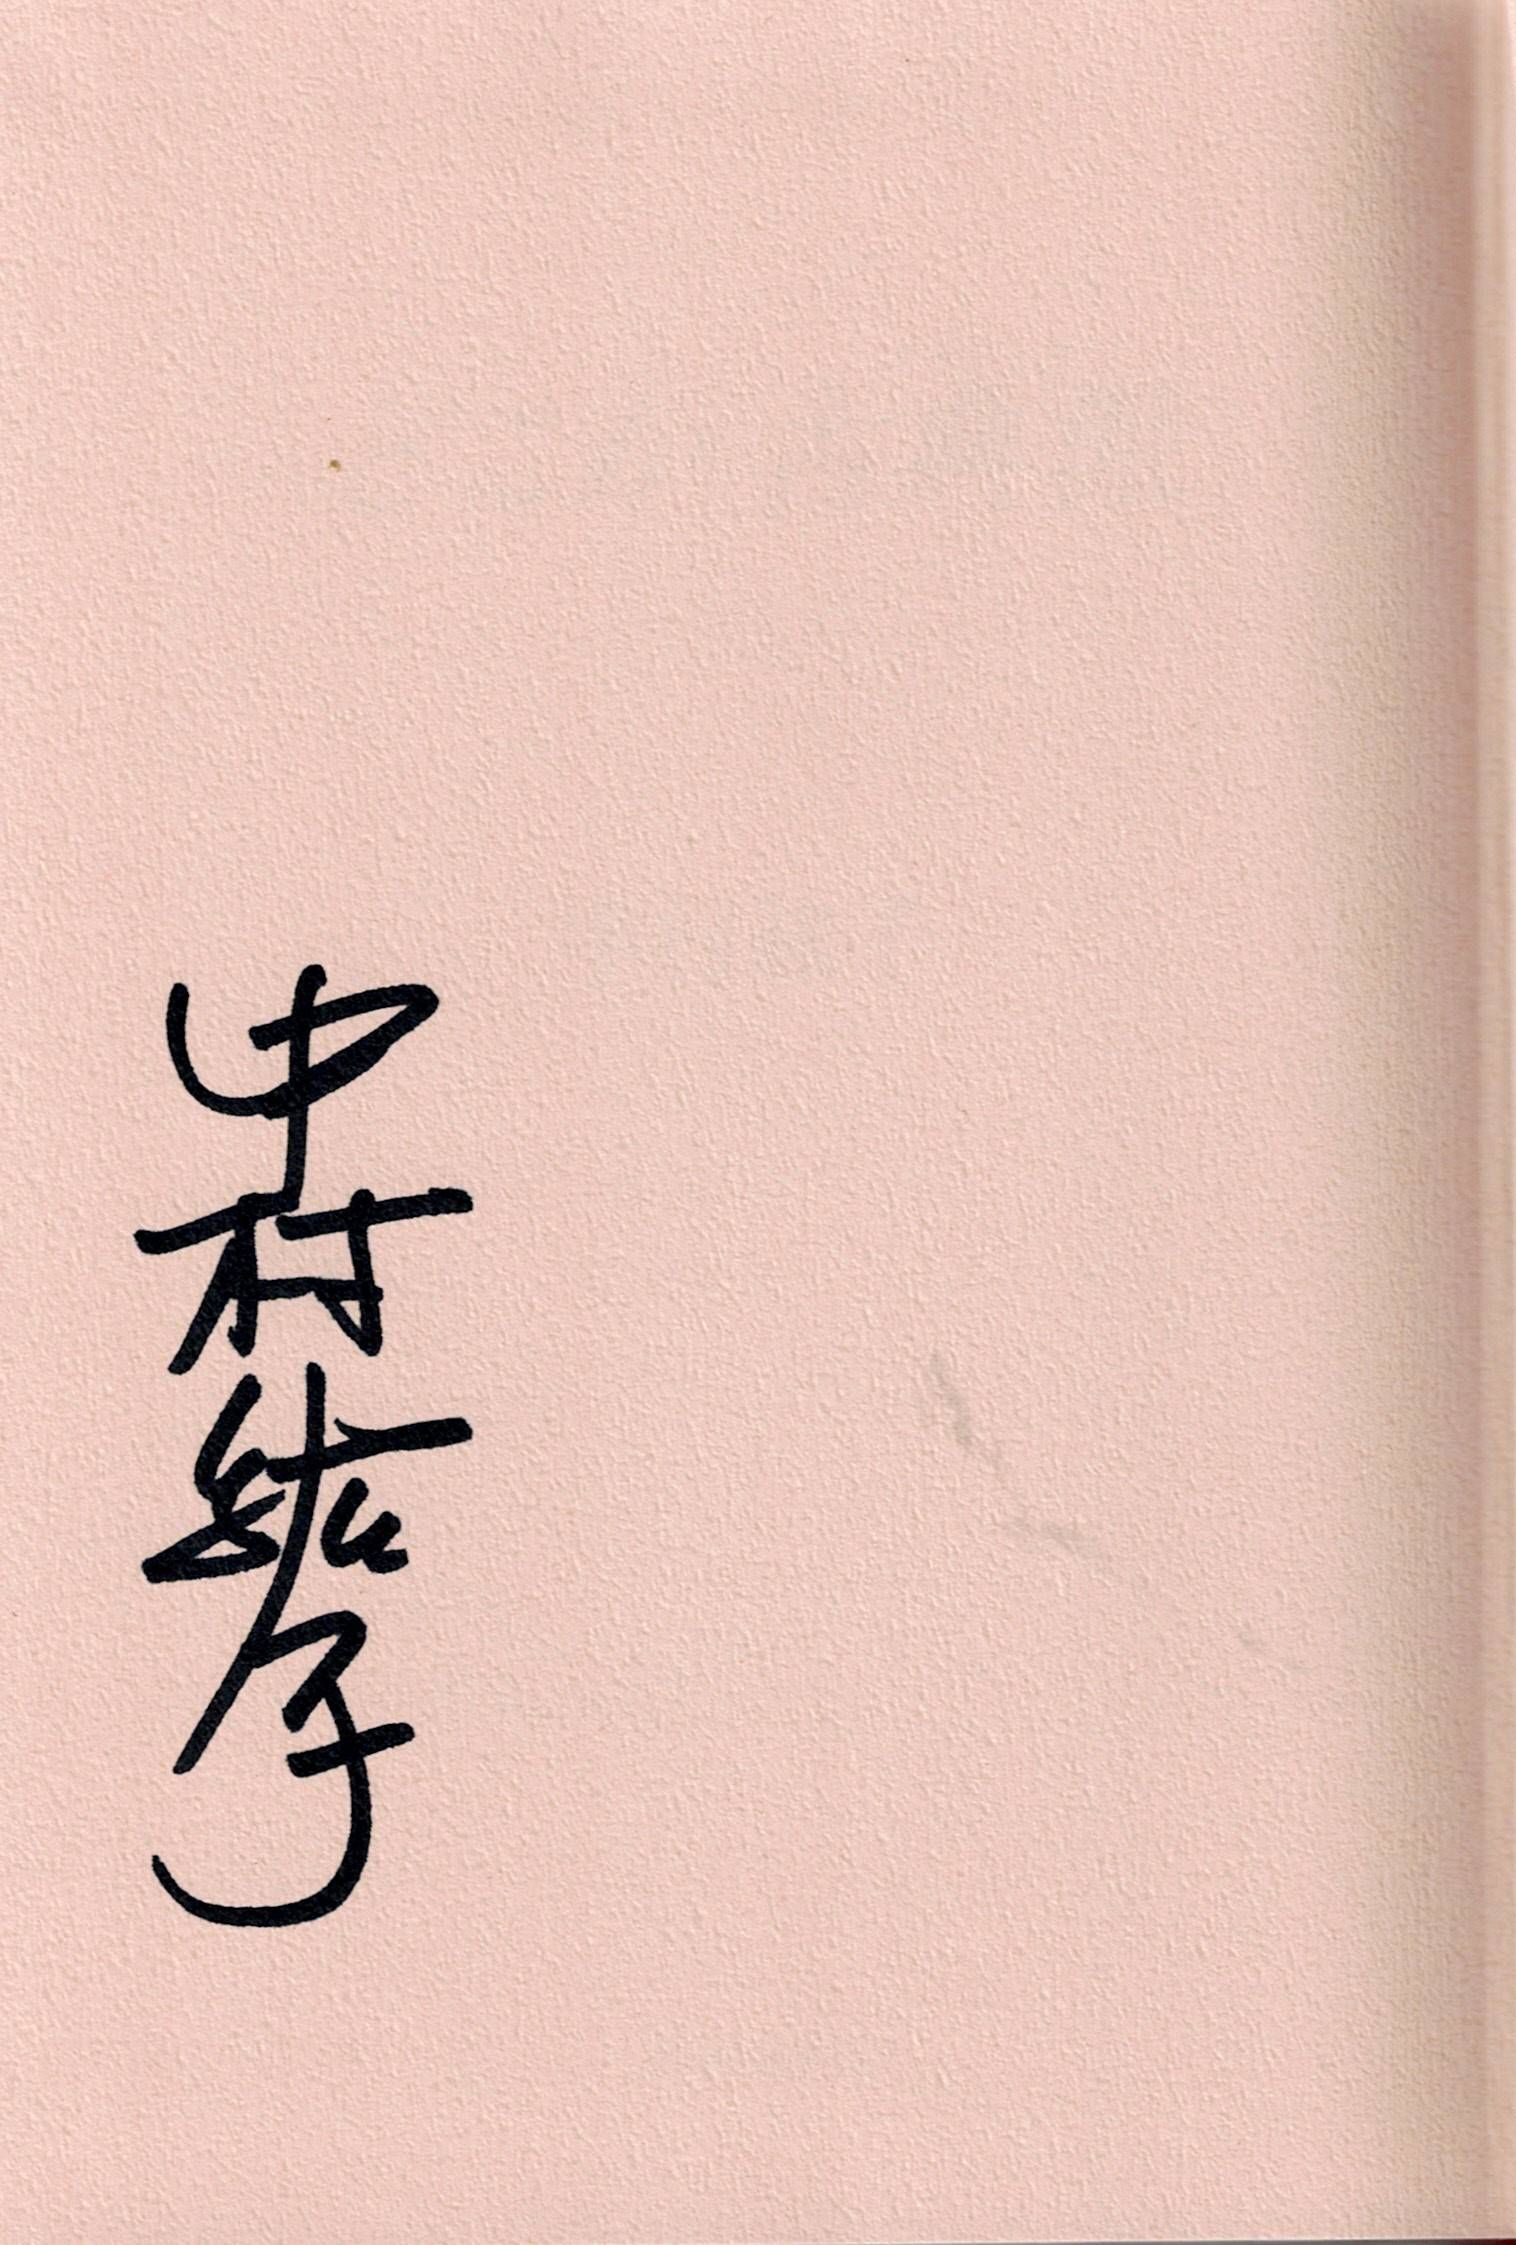 中村紘子